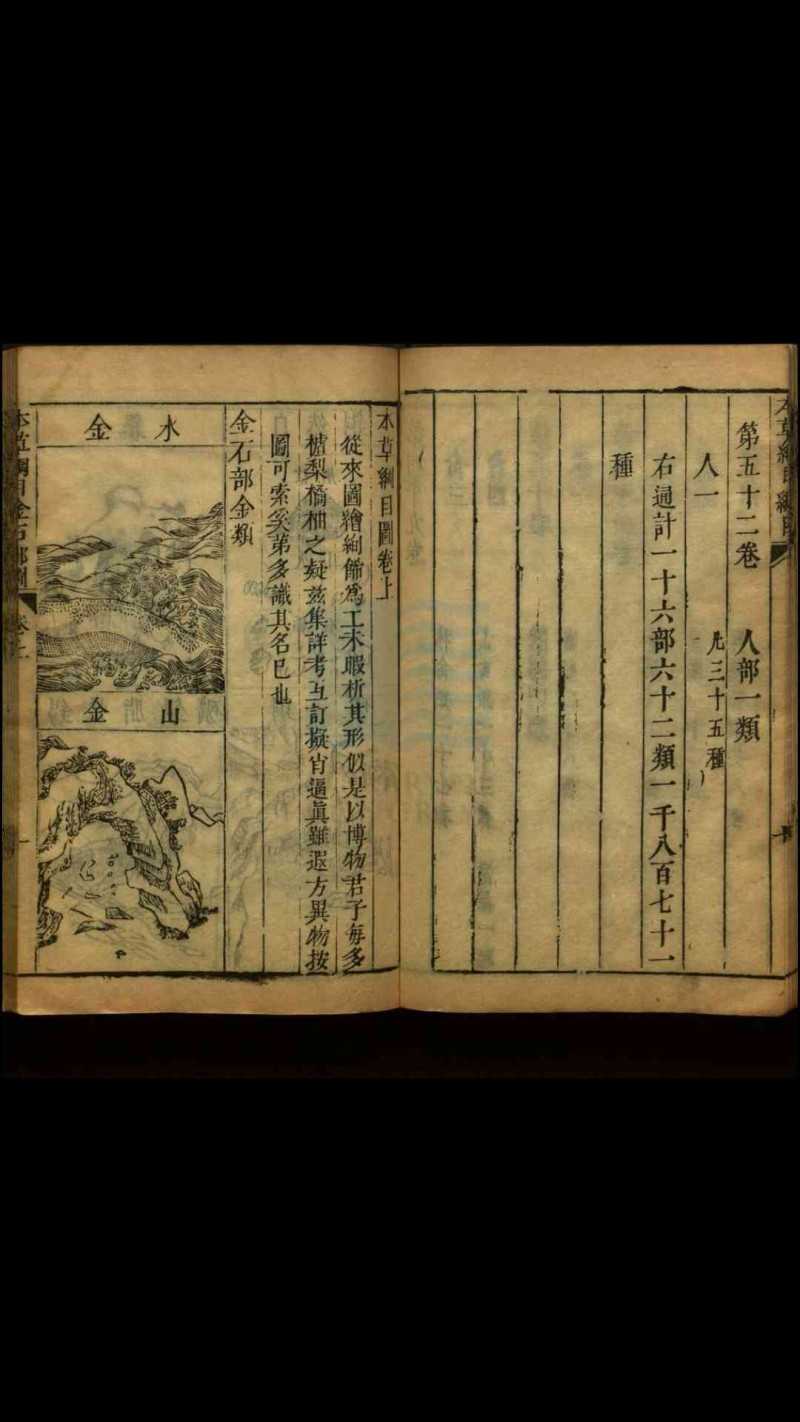 第五十二卷　人部一類
人一　凡三十五種
右通計一十六部六十二類一千八百七十一
種
本草綱目圖卷上
從來圖繪絢飾爲工未暇析其形似是以博物君子每多
樝梨橘柚之疑茲集詳考互訂擬肖逼眞雖遐方異物按
圖可索矣第多識其名已也
金石部金類
水金
山金